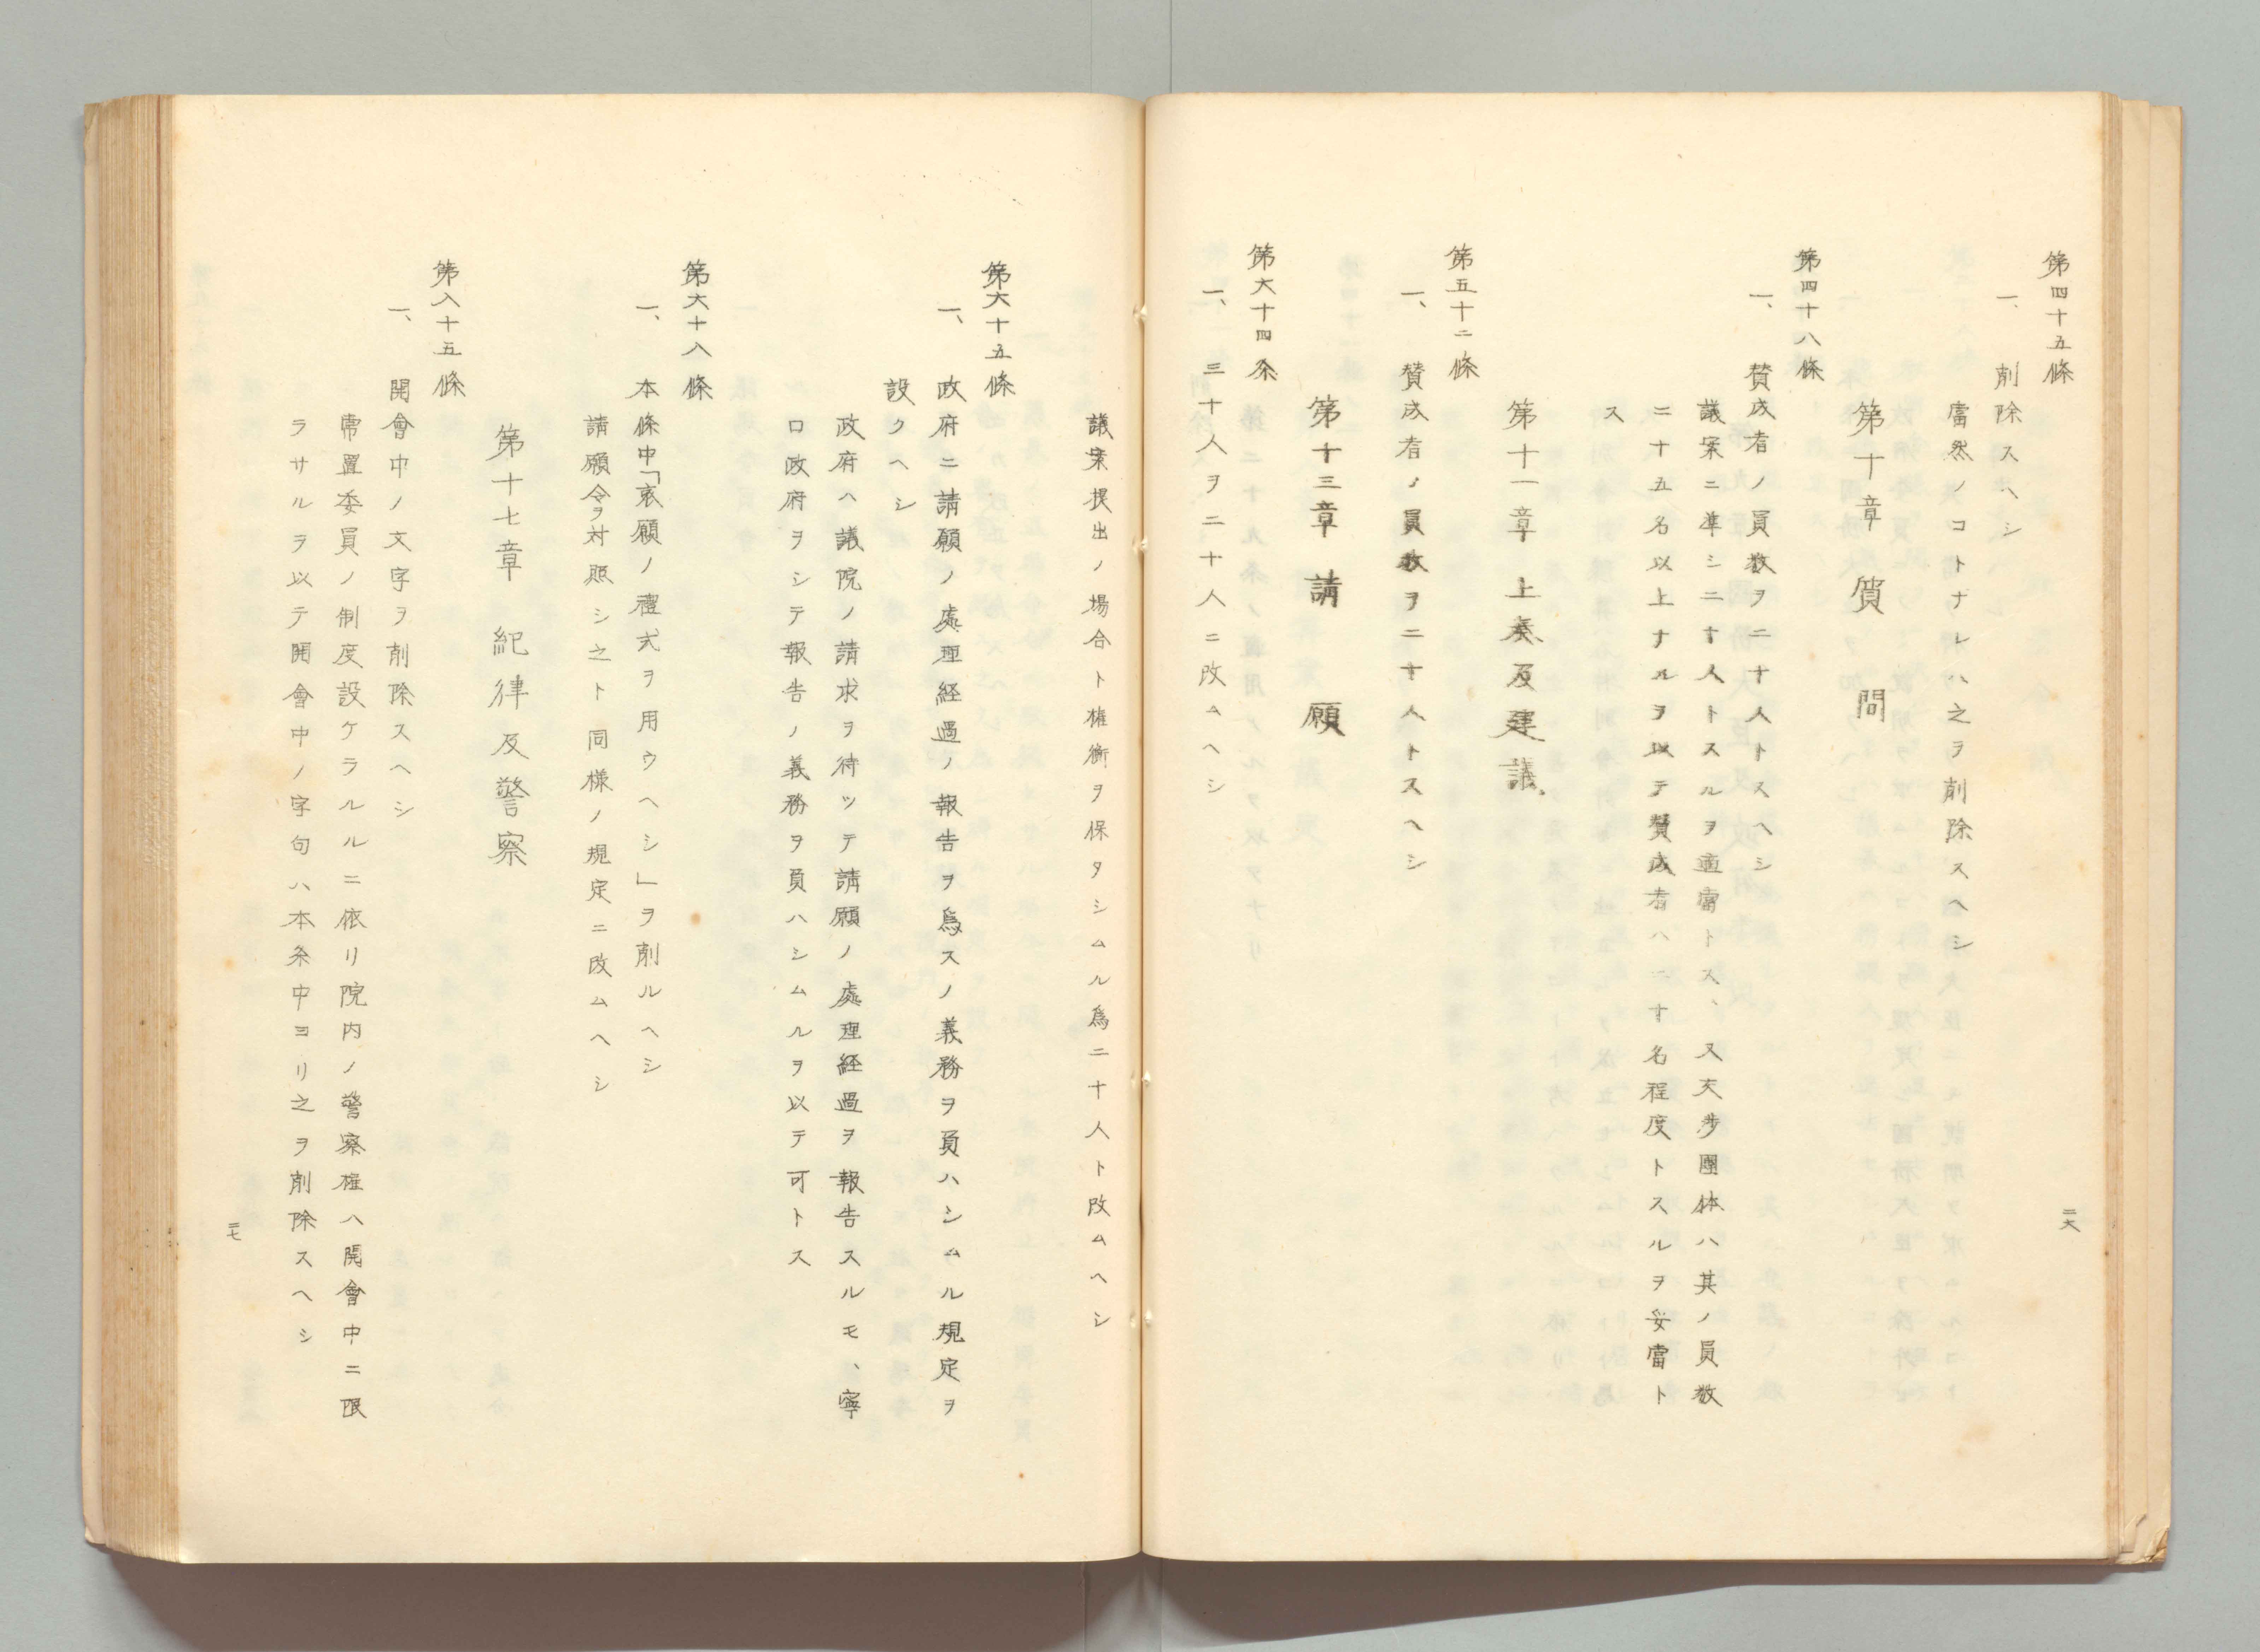 第四十五條
一、削除スヘシ
當然ノコトナレハ之ヲ削除スヘシ
第十章 質問
第四十八條
一、賛成者ノ員数ヲ二十人トスヘシ
議案ニ準シ二十人トスルヲ適當トス、又交步團体ハ其ノ員数
二十五名以上ナルヲ以テ賛成者ハ二十名程度トスルヲ妥當ト
ス
第十一章 上奏及建議
第五十二條
一、賛成者ノ員数ヲ二十人トスヘシ
第十三章 請願
第六十四条
一、三十人ヲ二十人ニ改ムヘシ
二六
議案提出ノ場合ト権衡ヲ保タシムル爲二十人ト改ムヘシ
第六十五條
一、政府ニ請願ノ處理経過ノ報告ヲ爲スノ義務ヲ負ハシムル規定ヲ
設クヘシ
政府ハ議院ノ請求ヲ待ツテ請願ノ處理経過ヲ報告スルモ、寧
ロ政府ヲシテ報告ノ義務ヲ負ハシムルヲ以テ可トス
第六十八條
一、本條中「哀願ノ禮式ヲ用ウヘシ」ヲ削ルヘシ
請願令ヲ対照シ之ト同様ノ規定ニ改ムヘシ
第十七章 紀律及警察
第八十五條
一、開會中ノ文字ヲ削除スヘシ
常置委員ノ制度設ケラルルニ依リ院内ノ警察権ハ開會中ニ限
ラサルヲ以テ開會中ノ字句ハ本条中ヨリ之ヲ削除スヘシ
二七